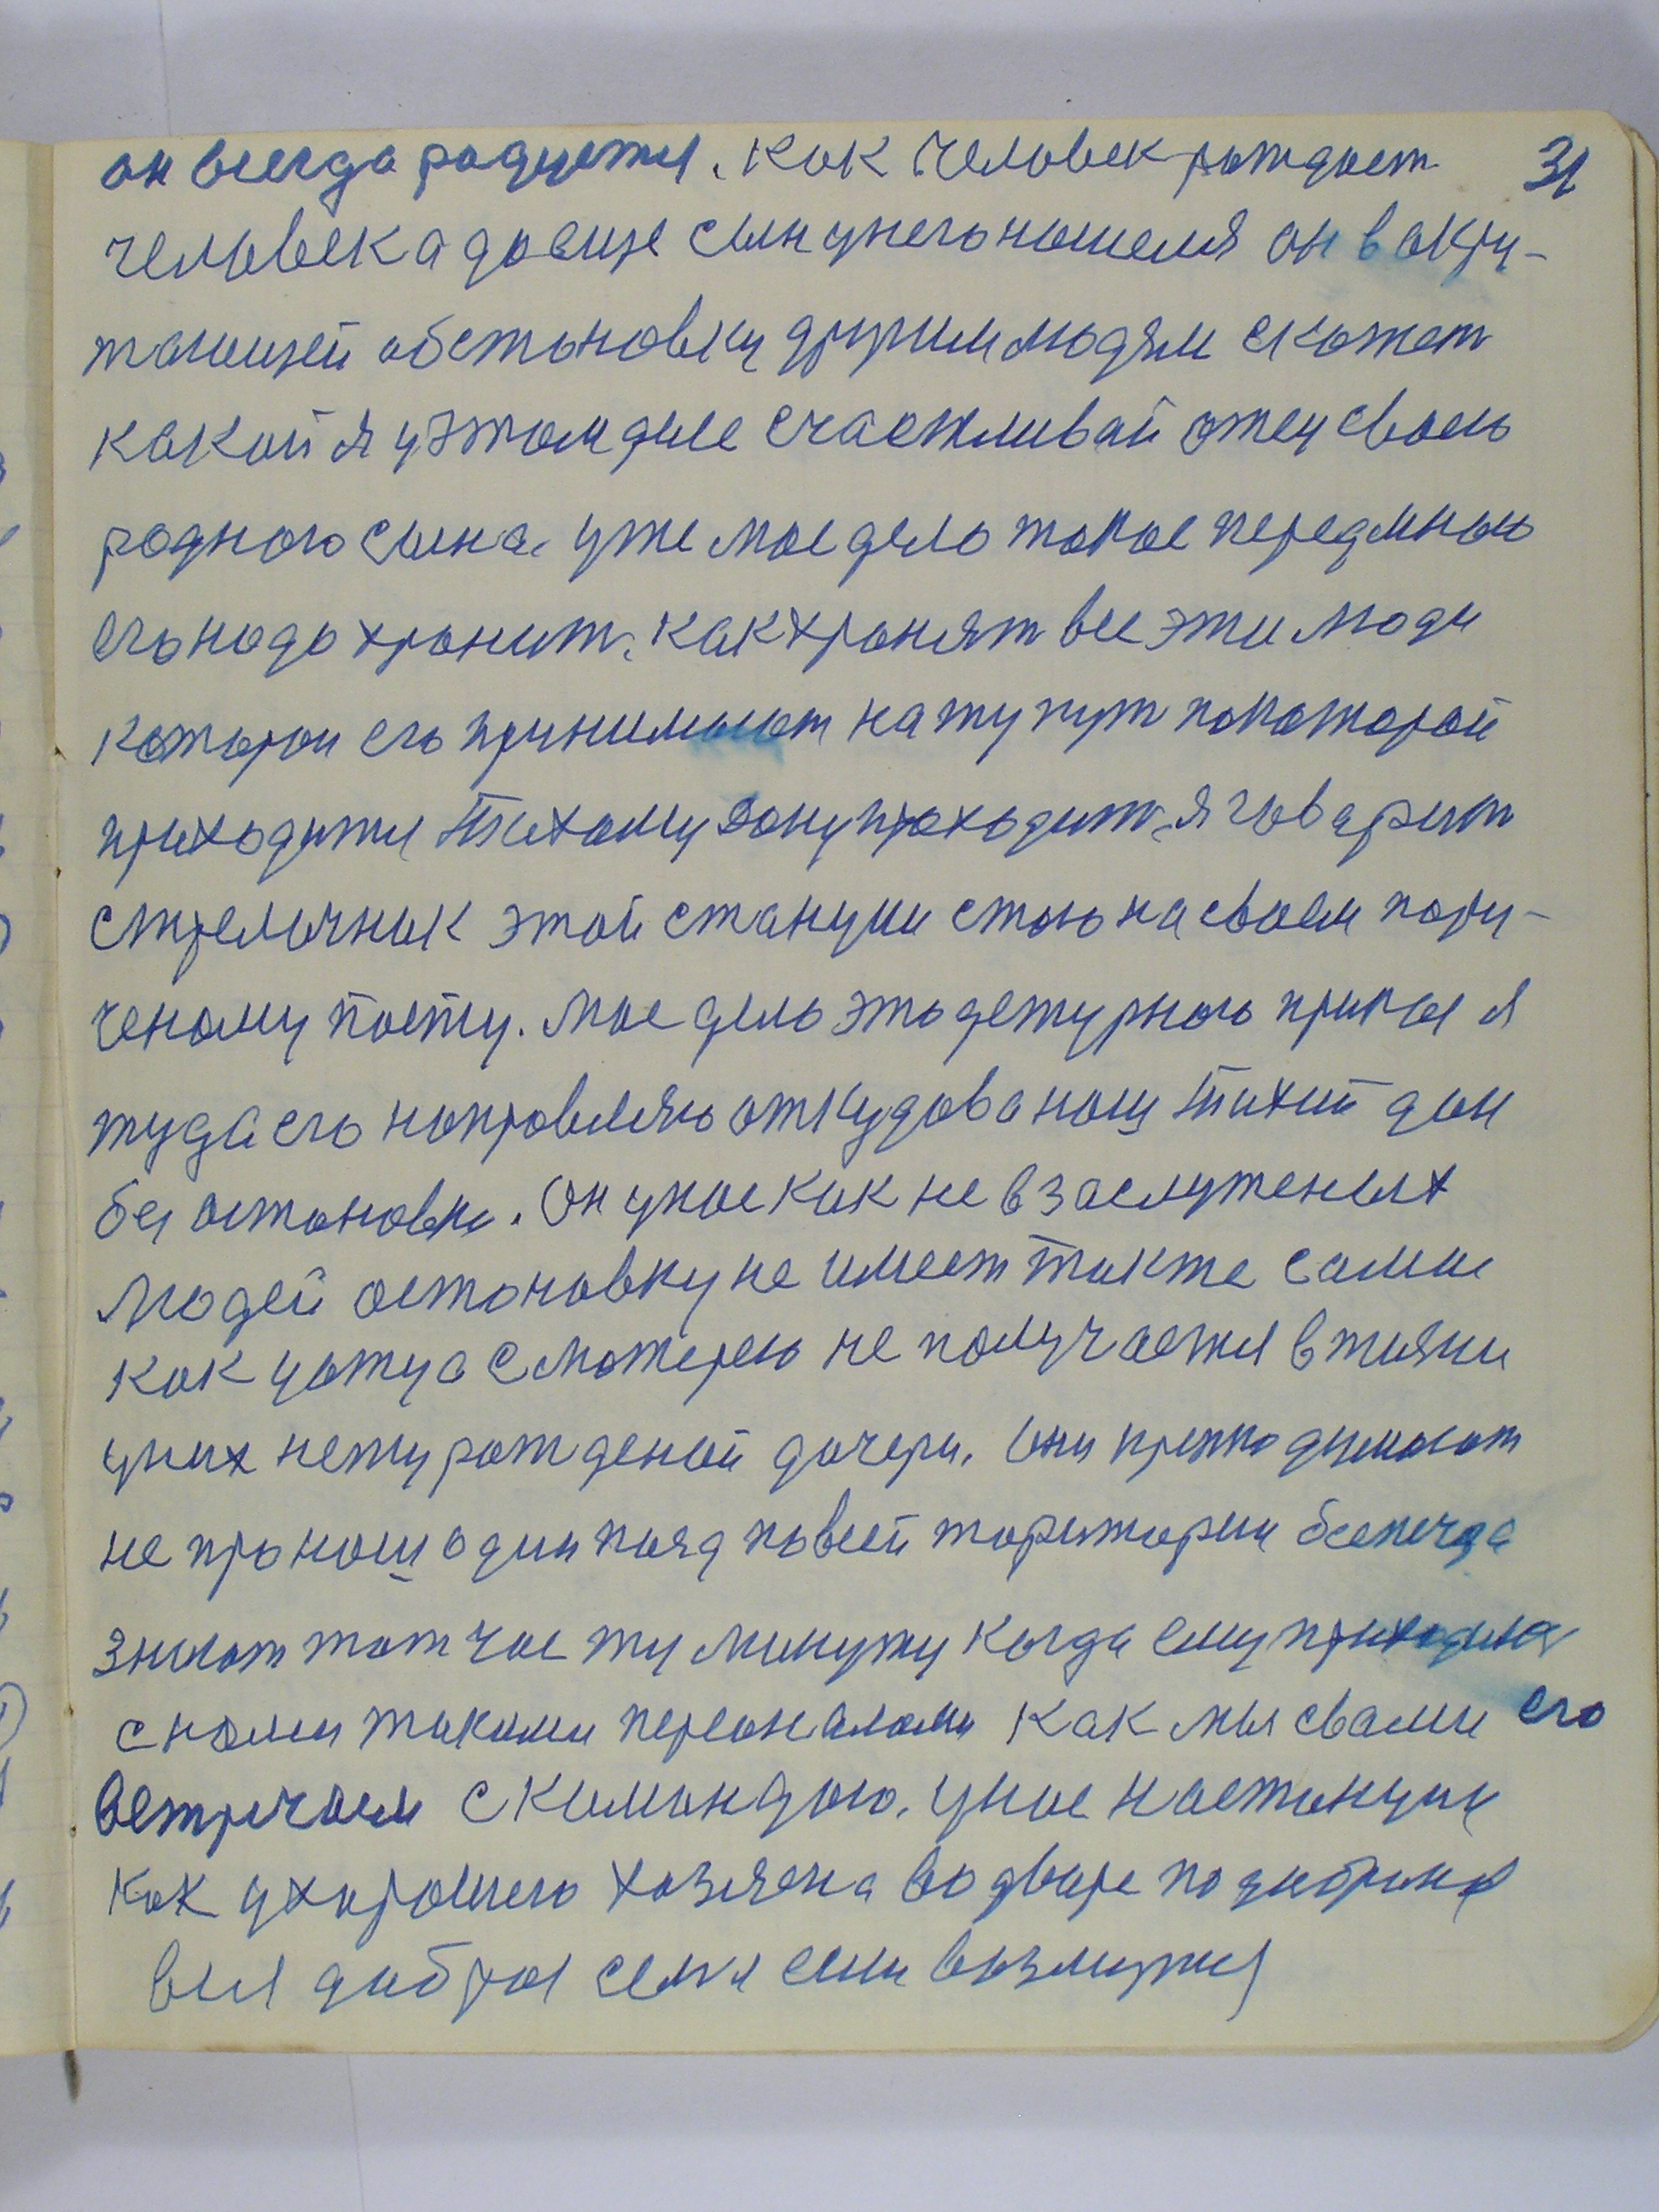 он всегда радуется. как человек рождает 31
человека да еще сын у него нашелся он в окру-
жающей обстановки другим людям скажет
какой я у этом деле счастливай отец своего
родного сына. уже мое дело такое передмною
его надо хранит. как хранят все эти люди
каторои его принимают на ту пут по каторой
приходится Тихому дону проходит. я говарит
стрелычник этой станции стою на своем пору-
ченому посту. мое дело это дежурного приказ я
туда его направляю откудова наш Тихий дон
без остановки. Он у нас как не в заслуженых
людей остановку не имеет также самое
как у отца с матерею не получается в жизни
у них нету рожденой дочери. Они крепко думают
не про наш один пояд по всей тариторий
знают тот час ту минуту когда ему
с нами такими персоналами как мы свами его
встричаем с командою. у нас на станции
как у харошего хозяена во дворе
вся добрая семя